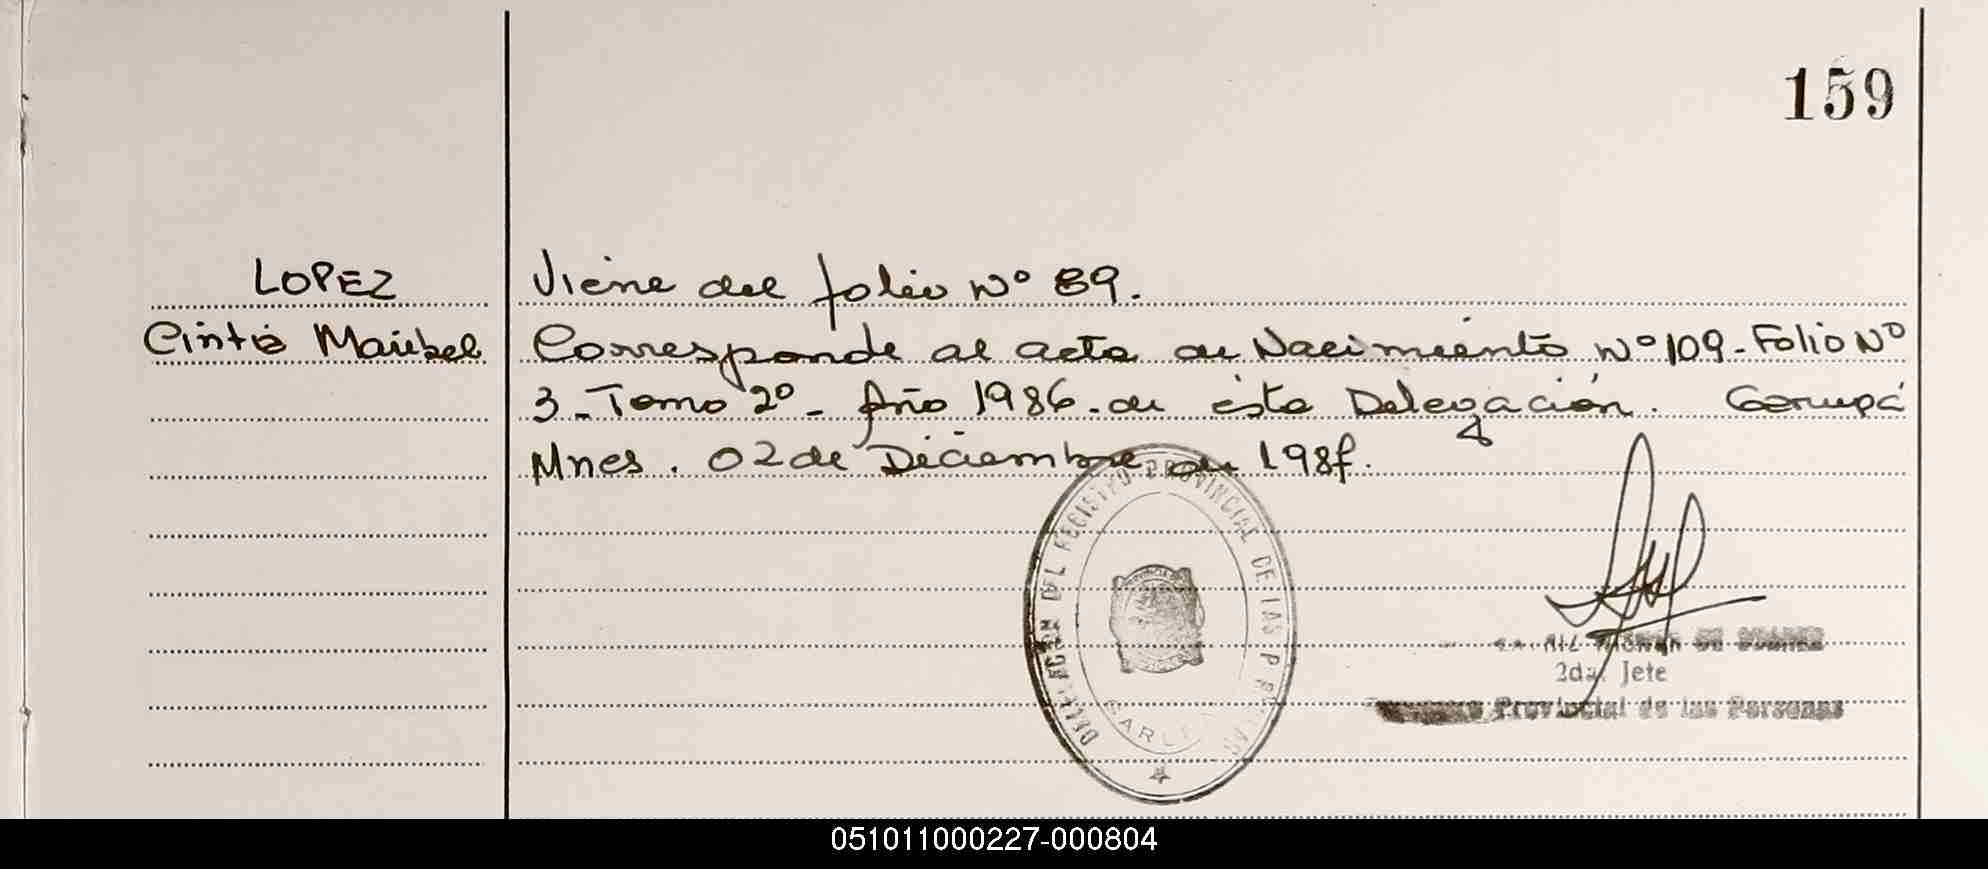 159
LOPEZ
Cintia Maribel
Viene del folio Nº 89.
Corresponde al acta de Nacimiento Nº 109 - Folio Nº
3 - Tomo 2º - Año 1986 - de ésta Delegación. Garupá
Mnes. 02 de Diciembre de 198
DELEGACION DEL REGISTRO PROVINCIAL DE LAS PERSONAS
2da. Jefe
Provincial de las Personas
051011000227-000804